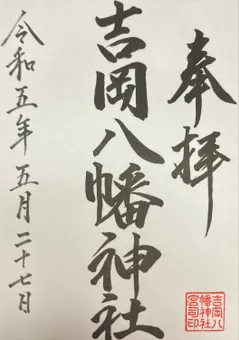 奉拝
吉岡八幡神社
令和五年五月二十七日
吉岡八
幡神社
宮司印